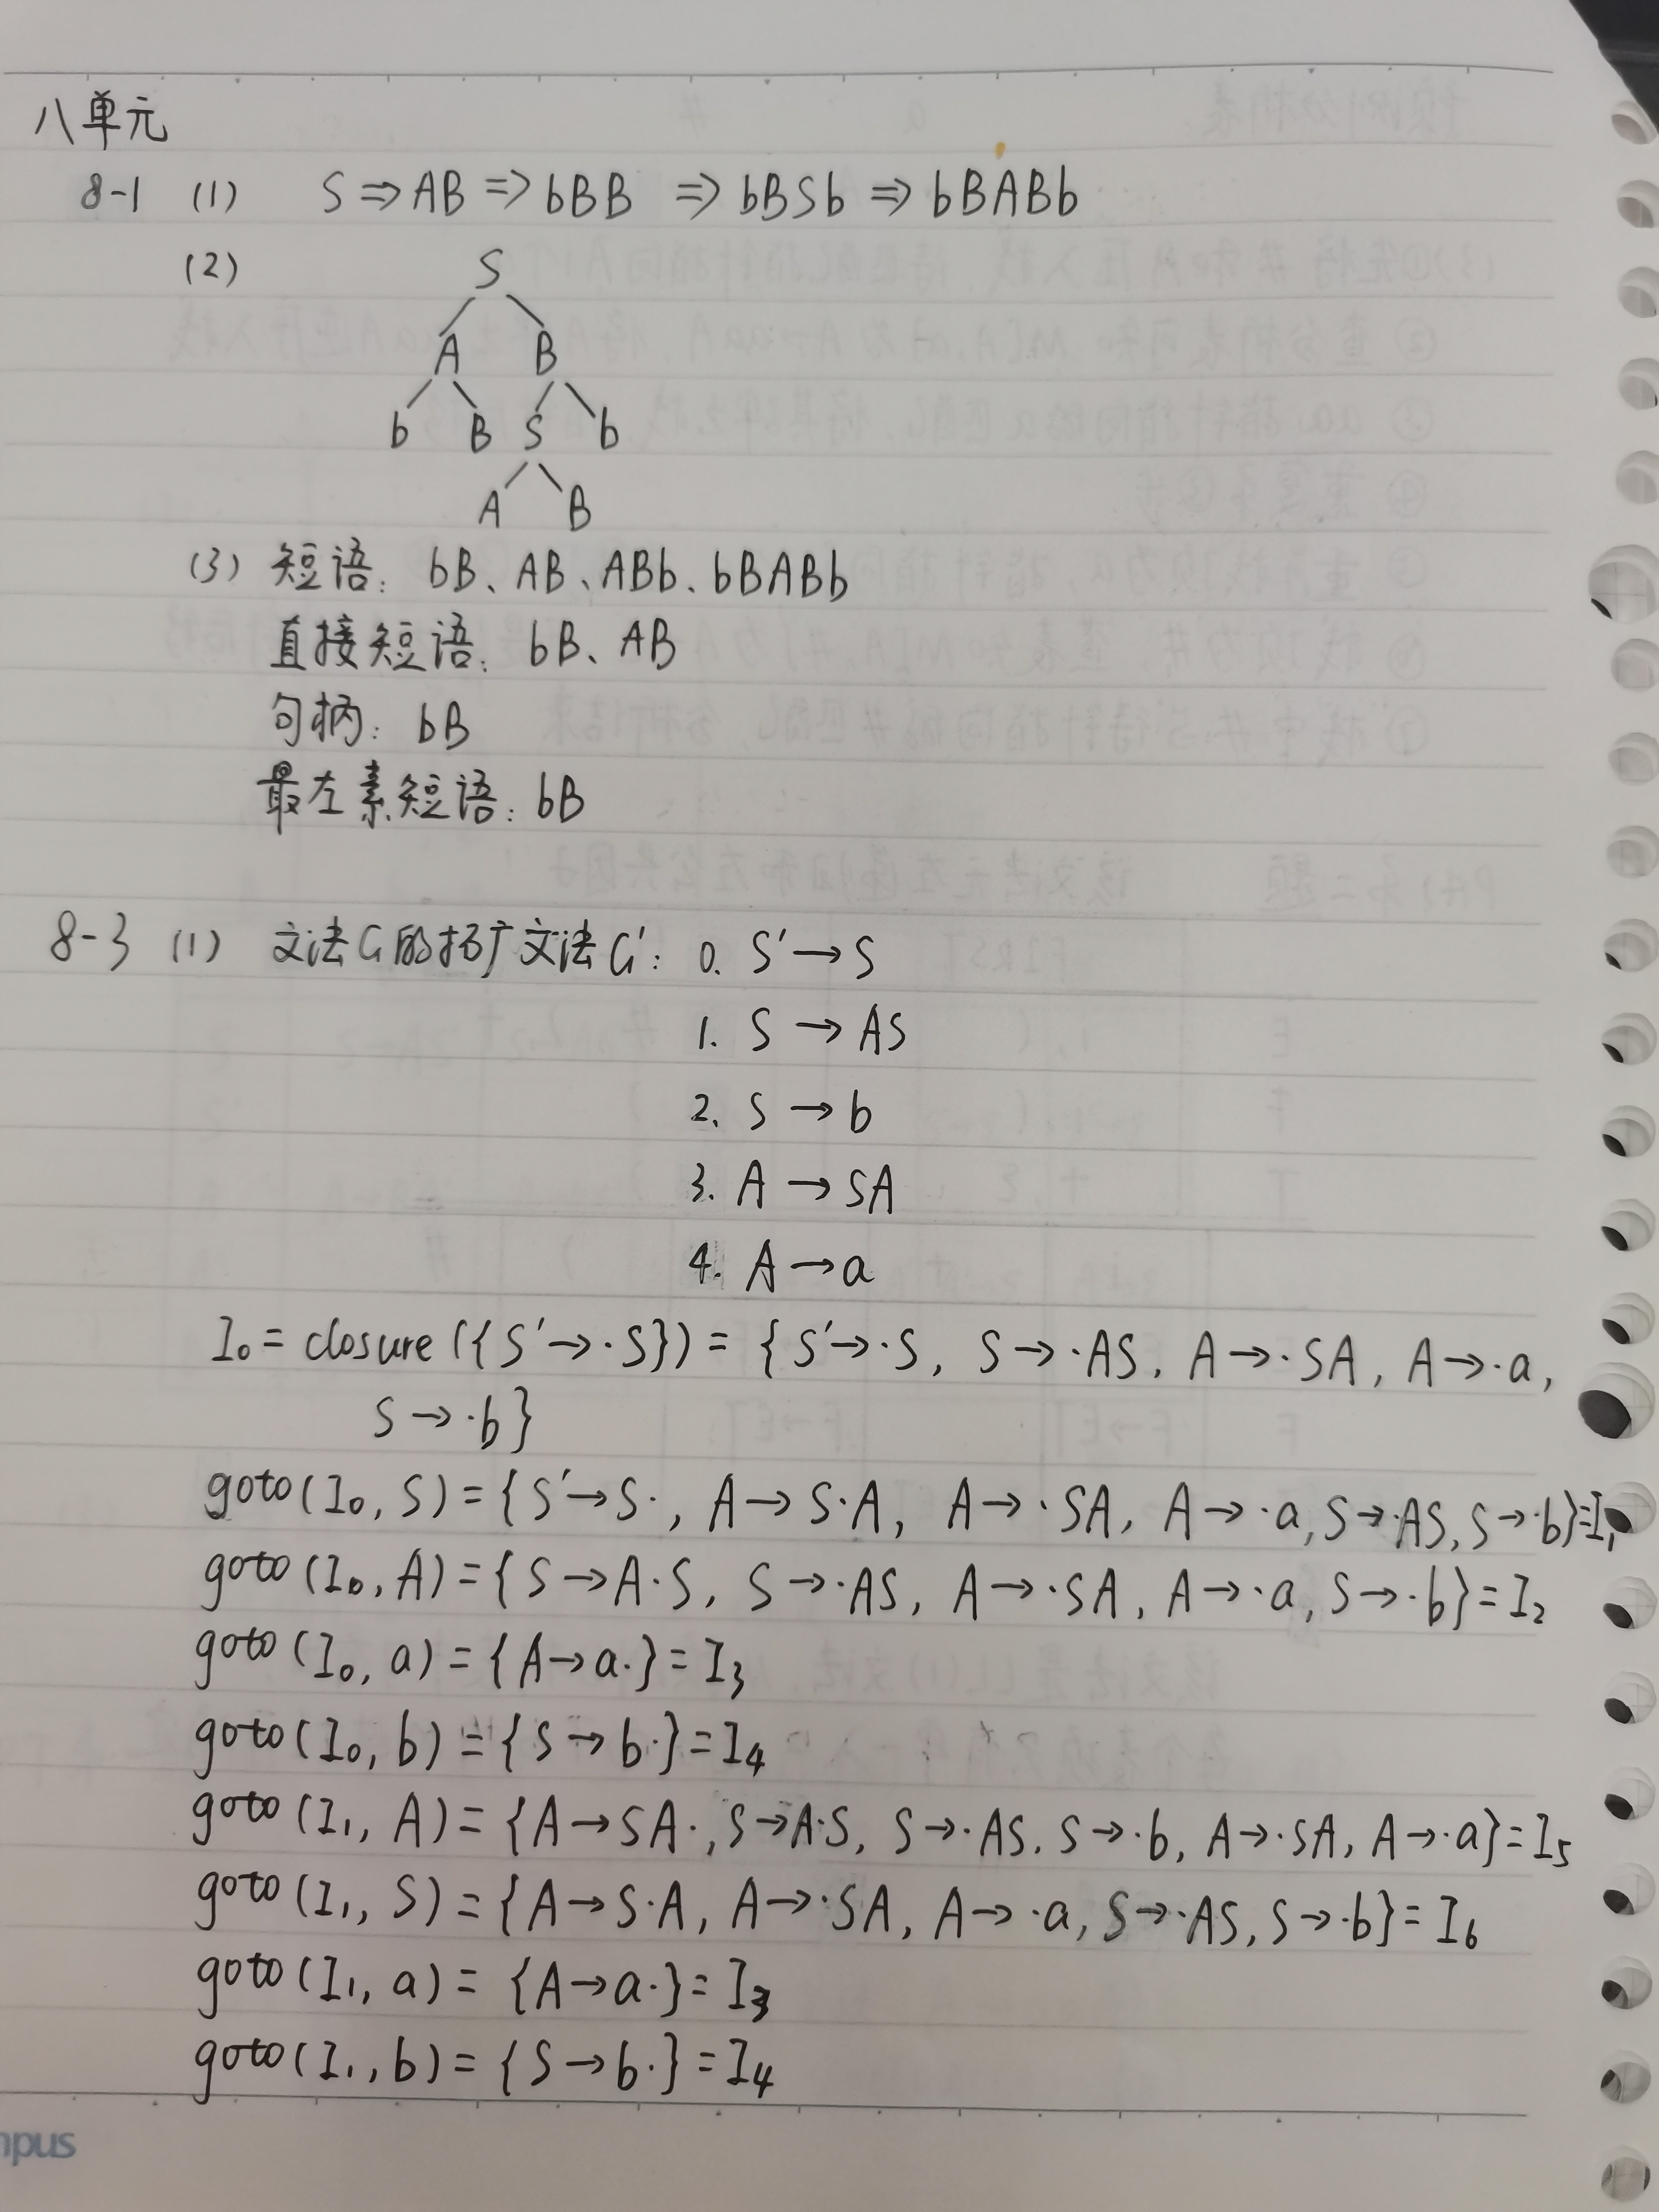 八单元
8-1 (1) S ⇒ AB ⇒ bBB ⇒ bBSb ⇒ bBABb
(2) S
A B
b B S b
A B
(3) 短语: bB、AB、ABb、bBABb
直接短语: bB、AB
句柄: bB
最左素短语: bB
8-3 (1) 文法G的拓广文法G': 0. S'→S
1. S→AS
2. S→b
3. A→SA
4. A→a
I₀ = closure({S'→·S}) = {S'→·S, S→·AS, A→·SA, A→·a,
S→·b}
goto(I₀, S) = {S'→S·, A→S·A, A→·SA, A→·a, S→·AS, S→·b}=I₁
goto(I₀, A) = {S→A·S, S→·AS, A→·SA, A→·a, S→·b}=I₂
goto(I₀, a) = {A→a·}=I₃
goto(I₀, b) = {S→b·}=I₄
goto(I₁, A) = {A→SA·, S→A·S, S→·AS, S→·b, A→·SA, A→·a}=I₅
goto(I₁, S) = {A→S·A, A→·SA, A→·a, S→·AS, S→·b}=I₆
goto(I₁, a) = {A→a·}=I₃
goto(I₁, b) = {S→b·}=I₄
mpus